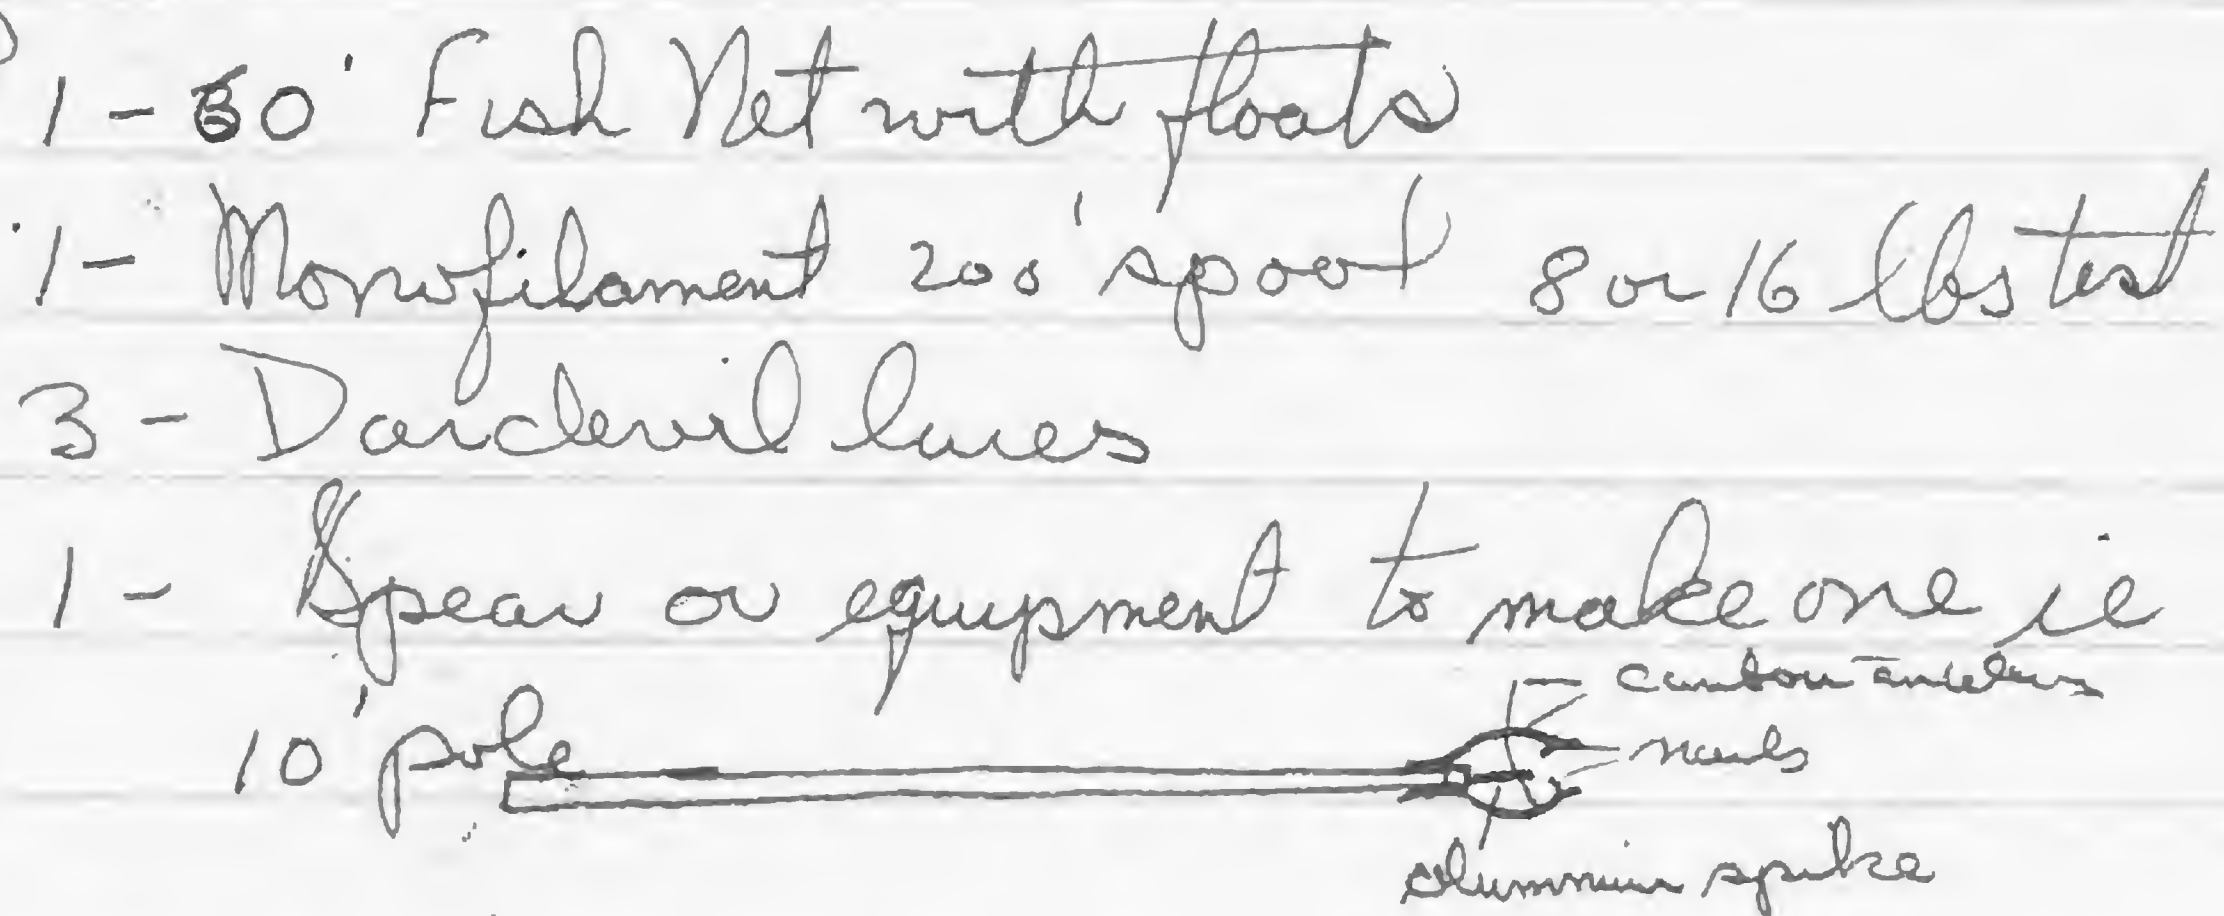 1 - 60' Fish Net with floats
1 - Monofilament 200' spool 8 or 16 lbs test
3 - Dardevil lures
1 - Spear or equipment to make one ie
caribou antlers
10' pole
nails
aluminum spike